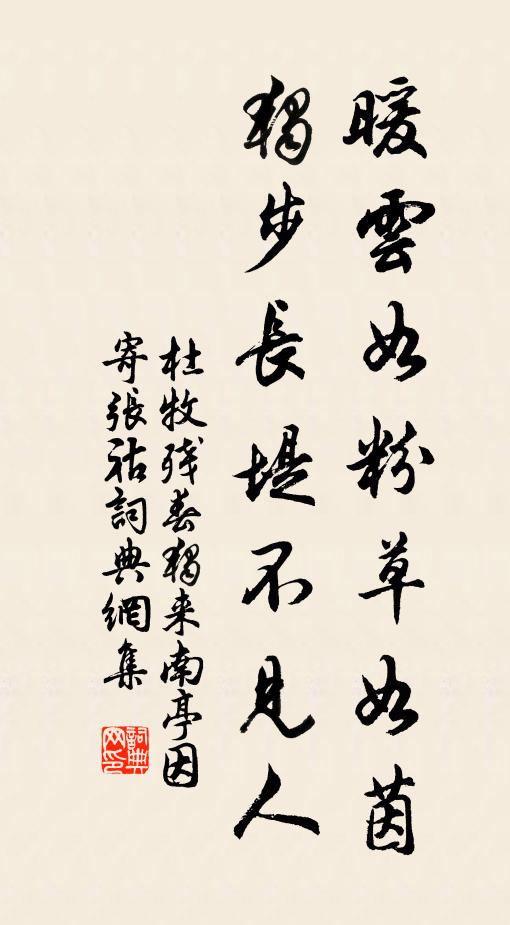 暖雲如粉草如茵
獨步長堤不見人
杜牧殘春獨来南亭因
寄張祜詞典網集
詞典网印